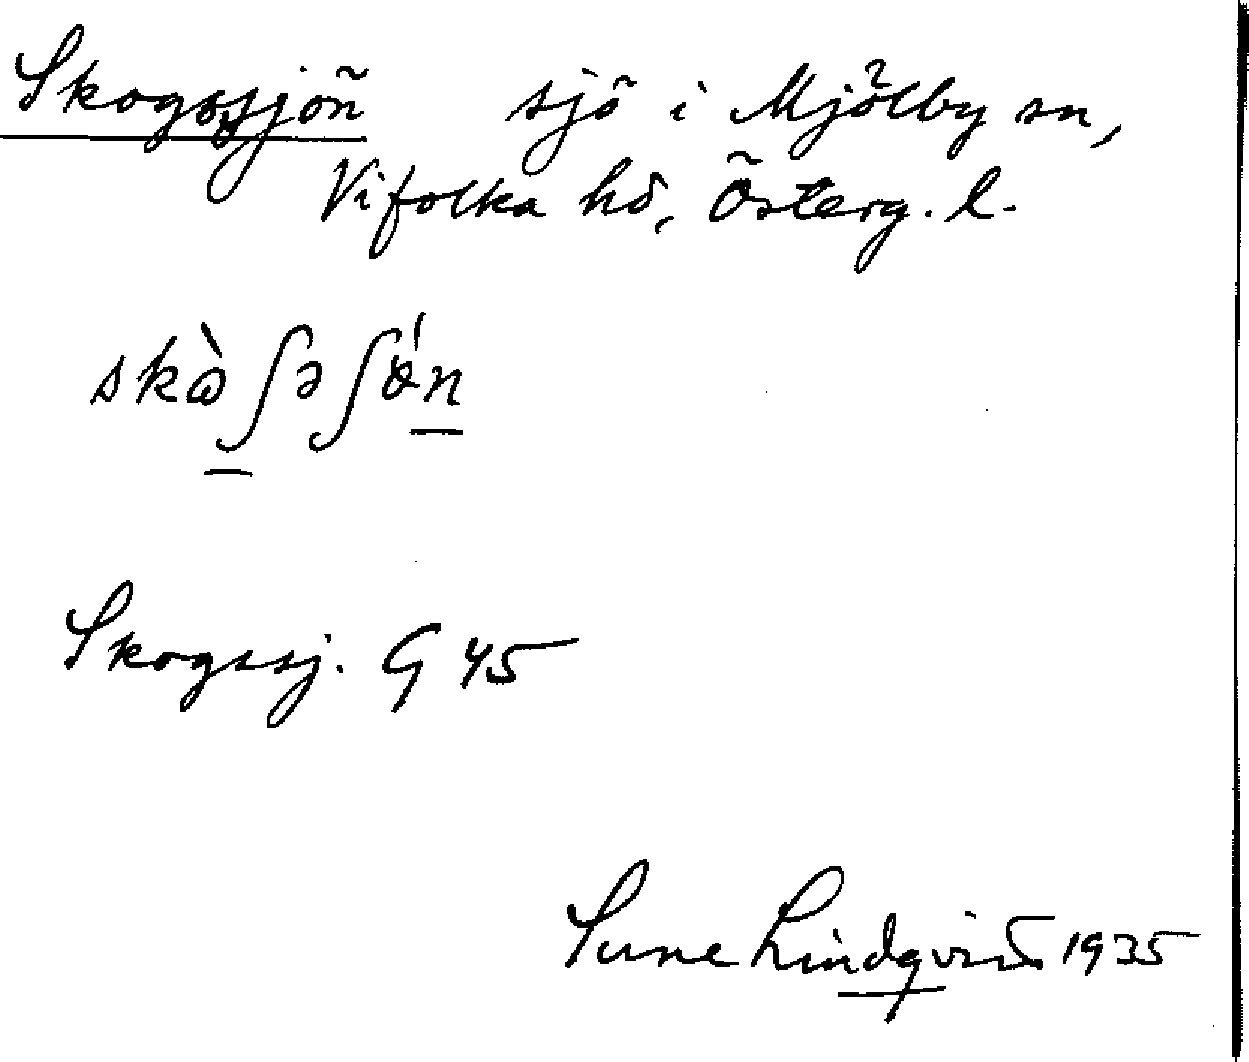 Skogssjön sjö i Mjölby sn,
Vifolka hd, Österg. l.
skὼʃəʃɵ́n
Skogssj. G 45
Sune Lindqvist 1935